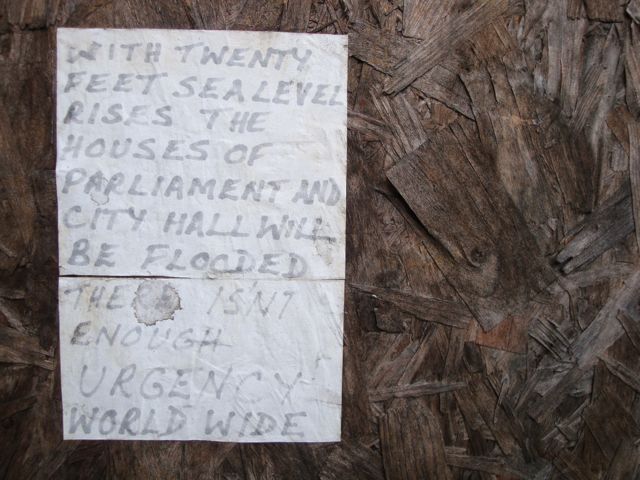 WITH TWENTY
FEET SEA LEVEL
RISES THE
HOUSES OF
PARLIAMENT AND
CITY HALL WILL
BE FLOODED
THERE ISN'T
ENOUGH
URGENCY
WORLD WIDE